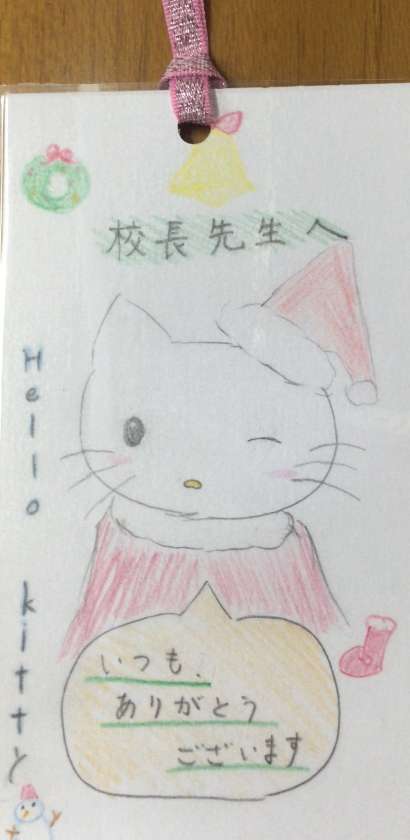 校長先生へ
Hello kitty
いつも、
ありがとう
ございます